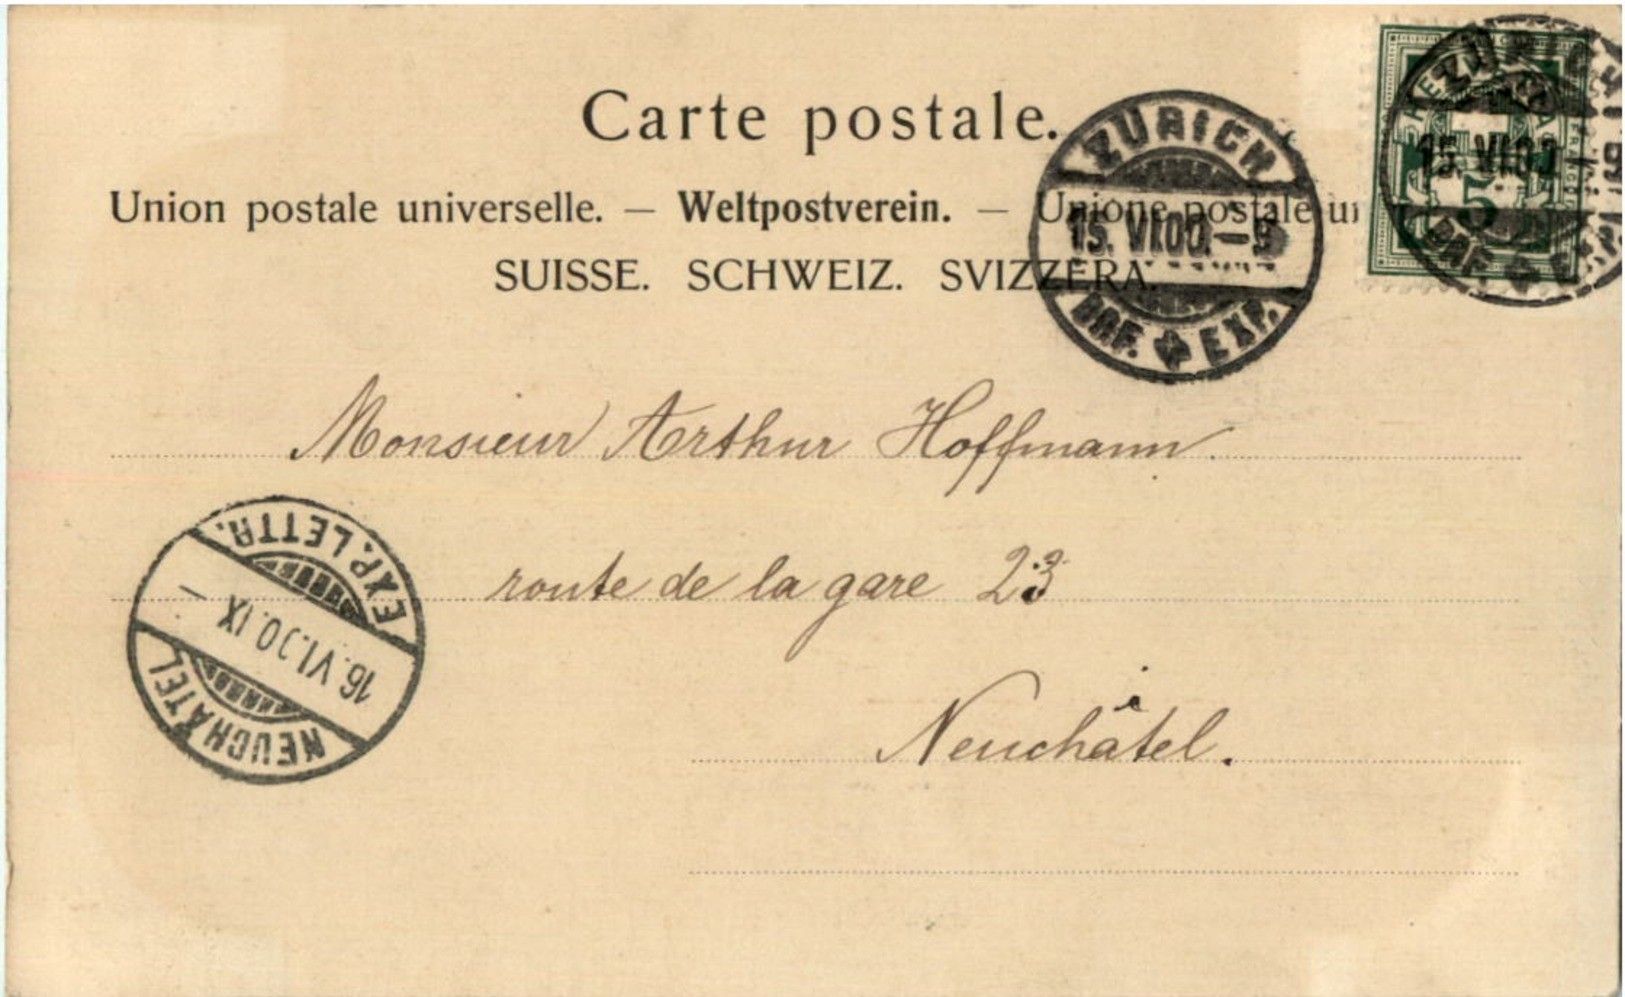 Carte postale.
Union postale universelle. — Weltpostverein. — Unione postale u
SUISSE. SCHWEIZ. SVIZZERA.
ZÜRICH
15. VI.00.–5
BRF. EXP.
ZÜRICH
15. VI.00
BRF. EXP.
FRANCO
5
Monsieur Arthur Hoffmann.
route de la gare 23
Neuchâtel.
EXP. LETTR.
16. VI.00. IX
NEUCHÂTEL